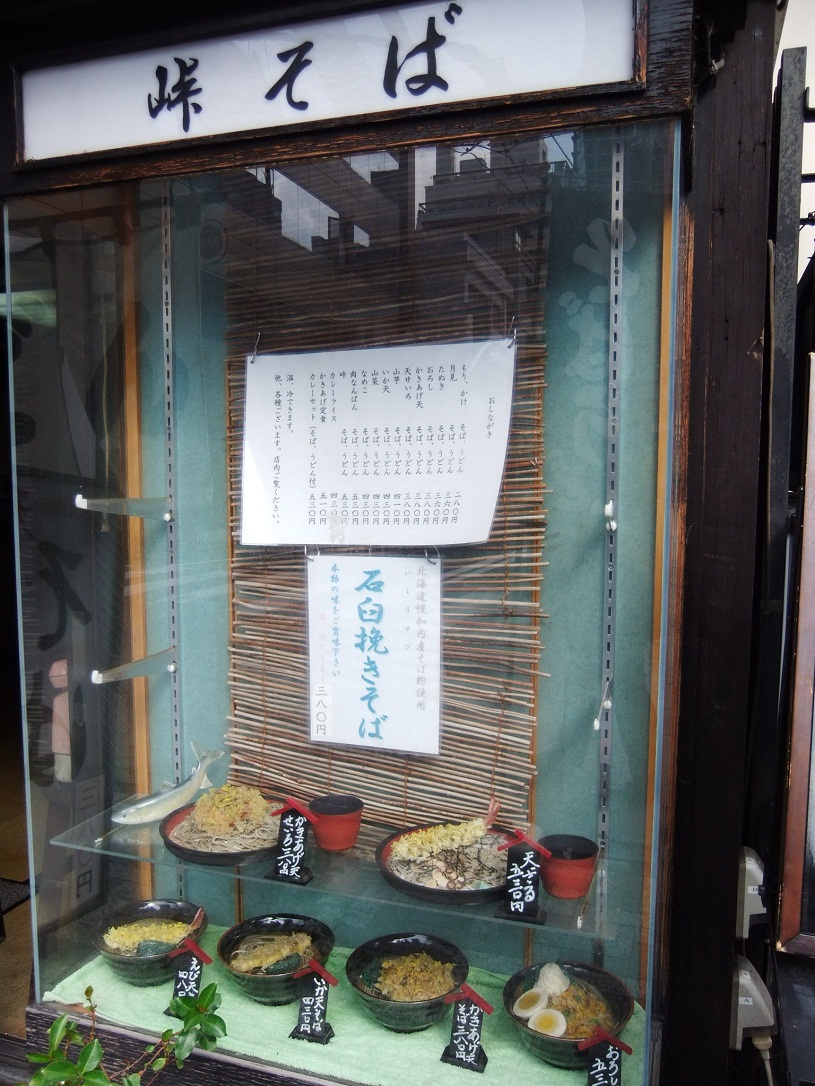 峠そば
おしながき
もり、かけ そば、うどん 二八〇円
月見 そば、うどん 三六〇円
たぬき そば、うどん 三六〇円
おろし そば、うどん 三八〇円
かきあげ天 そば、うどん 三八〇円
天せいろ そば、うどん 三八〇円
山芋 そば、うどん 四一〇円
いか天 そば、うどん 四三〇円
山菜 そば、うどん 四三〇円
なめこ そば、うどん 四三〇円
肉なんばん そば、うどん 五三〇円
峠 そば、うどん 五三〇円
カレーライス 四三〇円
かきあげ定食 五一〇円
カレーセット(そば、うどん付) 五三〇円
温、冷できます。
他、各種ございます。店内ご覧ください。
北海道幌加内産そば粉使用
いしうすび
石臼挽きそば
本物の味をご賞味下さい
三八〇円
かきあげ天
せいろ三八〇円
天ざる
五三〇円
えび天
四八〇
いか天そば
四三〇円
かきあげ天
そば三八〇円
おろし
三八〇